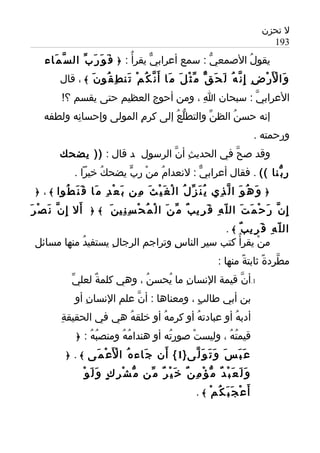 لا تحزن
193
يقولُ الأصمعيُّ : سمع أعرابيٌّ يقرأُ : ﴿ فَوَرَبِّ السَّمَاء
وَالْأَرْضِ إِنَّهُ لَحَقٌّ مِّثْلَ مَا أَنَّكُمْ تَنطِقُونَ ﴾ ، قال
الأعرابيُّ : سبحان اللهِ ، ومن أحوج العظيم حتى يقسم ؟!
إنه حسنُ الظنِّ والتطلُّعُ إلى كرم المولى وإحسانِه ولطفه
ورحمته .
وقد صحَّ في الحديثِ أنَّ الرسول قال : (( يضحك
ربُّنا )) . فقال أعرابيٌّ : لانعدامُ منْ ربٍّ يضحكُ خيرًا .
﴿ وَهُوَ الَّذِي يُنَزِّلُ الْغَيْثَ مِن بَعْدِ مَا قَنَطُوا ﴾ ، ﴿
إِنَّ رَحْمَتَ اللّهِ قَرِيبٌ مِّنَ الْمُحْسِنِينَ ﴾ ﴿ أَلا إِنَّ نَصْرَ
اللّهِ قَرِيبٌ ﴾ .
من يقرأُ كتب سير الناس وتراجم الرجالِ يستفيدُ منها مسائل
مطَّردةً ثابتةً منها :
1 أنَّ قيمة الإنسانِ ما يُحسنُ ، وهي كلمةٌ لعليِّ
بن أبي طالبٍ ، ومعناها : أنَّ علم الإنسانِ أو
أدبهُ أو عبادتهُ أو كرمهُ أو خلقهُ هي في الحقيقةِ
قيمتُهُ ، وليستْ صورتُه أو هندامُهُ ومنصبُهُ : ﴿
عَبَسَ وَتَوَلَّى{1} أَن جَاءهُ الْأَعْمَى ﴾ . ﴿
وَلَعَبْدٌ مُّؤْمِنٌ خَيْرٌ مِّن مُّشْرِكٍ وَلَوْ
أَعْجَبَكُمْ ﴾ .